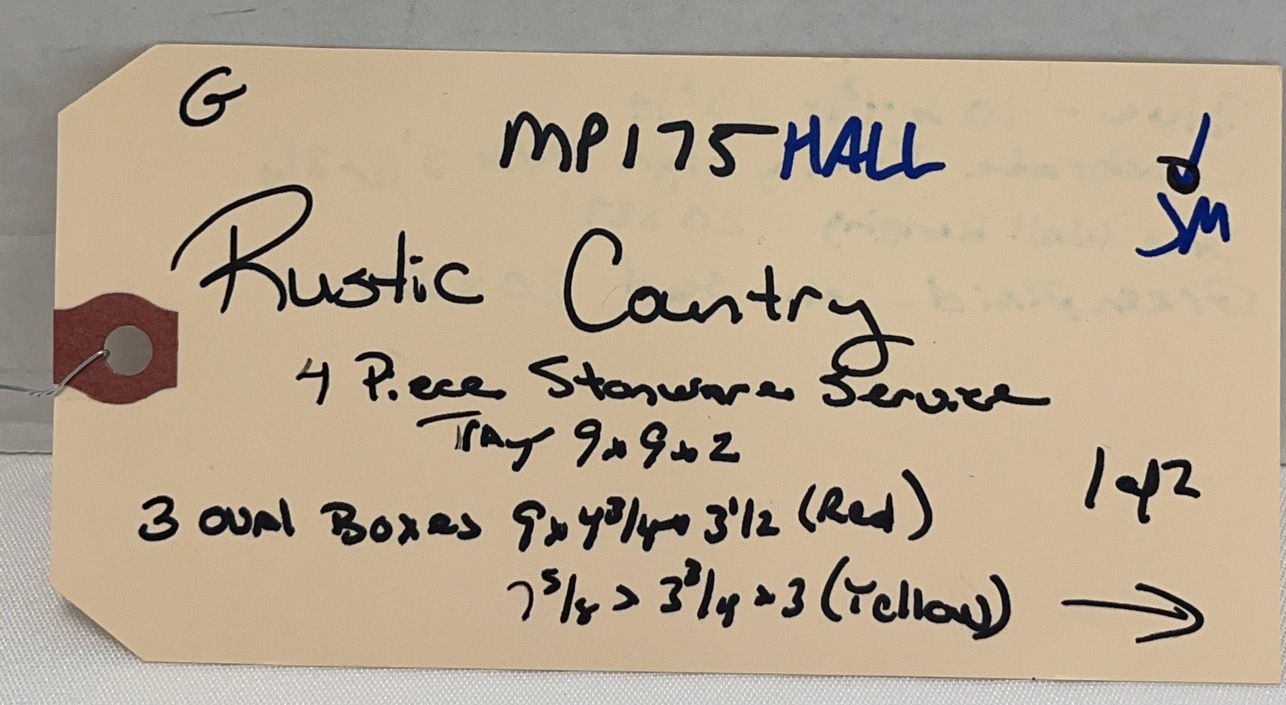 G
MP175 HALL
JM
Rustic Country
4 Piece Stonware Service
Tray 9x9x2
1 of 2
3 oval Boxes 9x4 3/4x 3 1/2 (Red)
7 5/8 x 3 3/4 x 3 (Yellow)